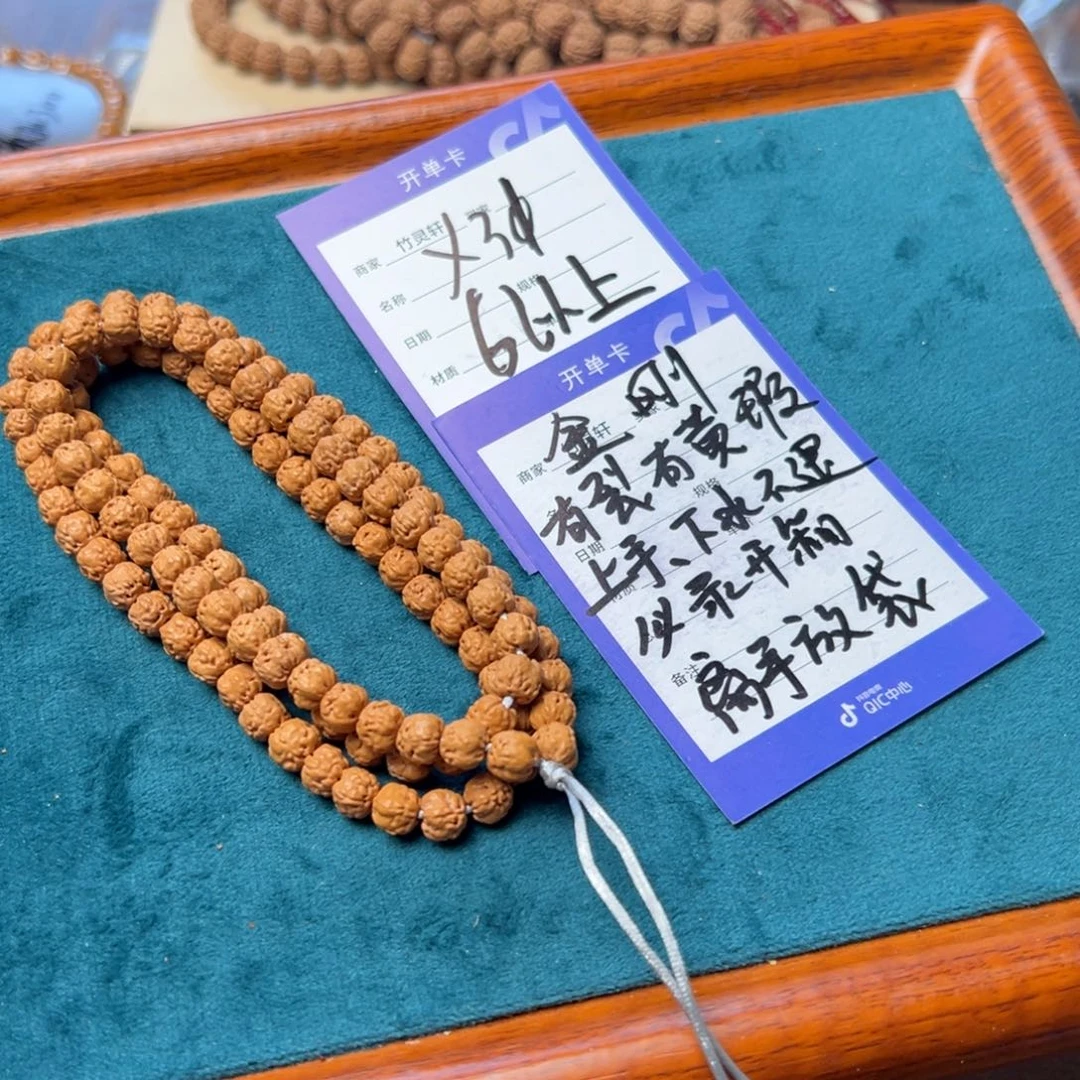 开单卡
商家 竹灵轩
义冲
名称
规格
6以上
日期
材质
开单卡
金刚
商家 轩
有裂有黄瑕
规格
上手、下水不退
日期
材质
仪录开箱
离手放袋
备注
抖音电商
QIC中心